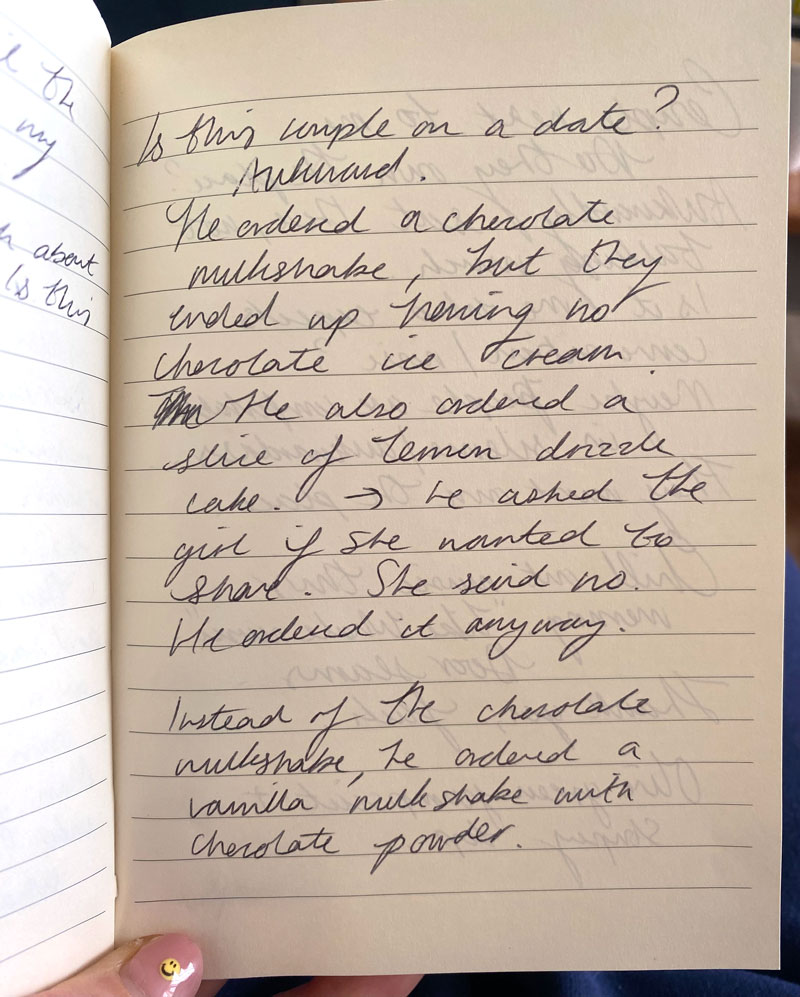 the
my
about
Is this
Is this couple on a date?
Awkward.
He ordered a chocolate
milkshake, but they
ended up having no
chocolate ice cream.
He also ordered a
slice of lemon drizzle
cake. → he asked the
girl if she wanted to
share. She said no.
He ordered it anyway.
Instead of the chocolate
milkshake, he ordered a
vanilla milkshake with
chocolate powder.